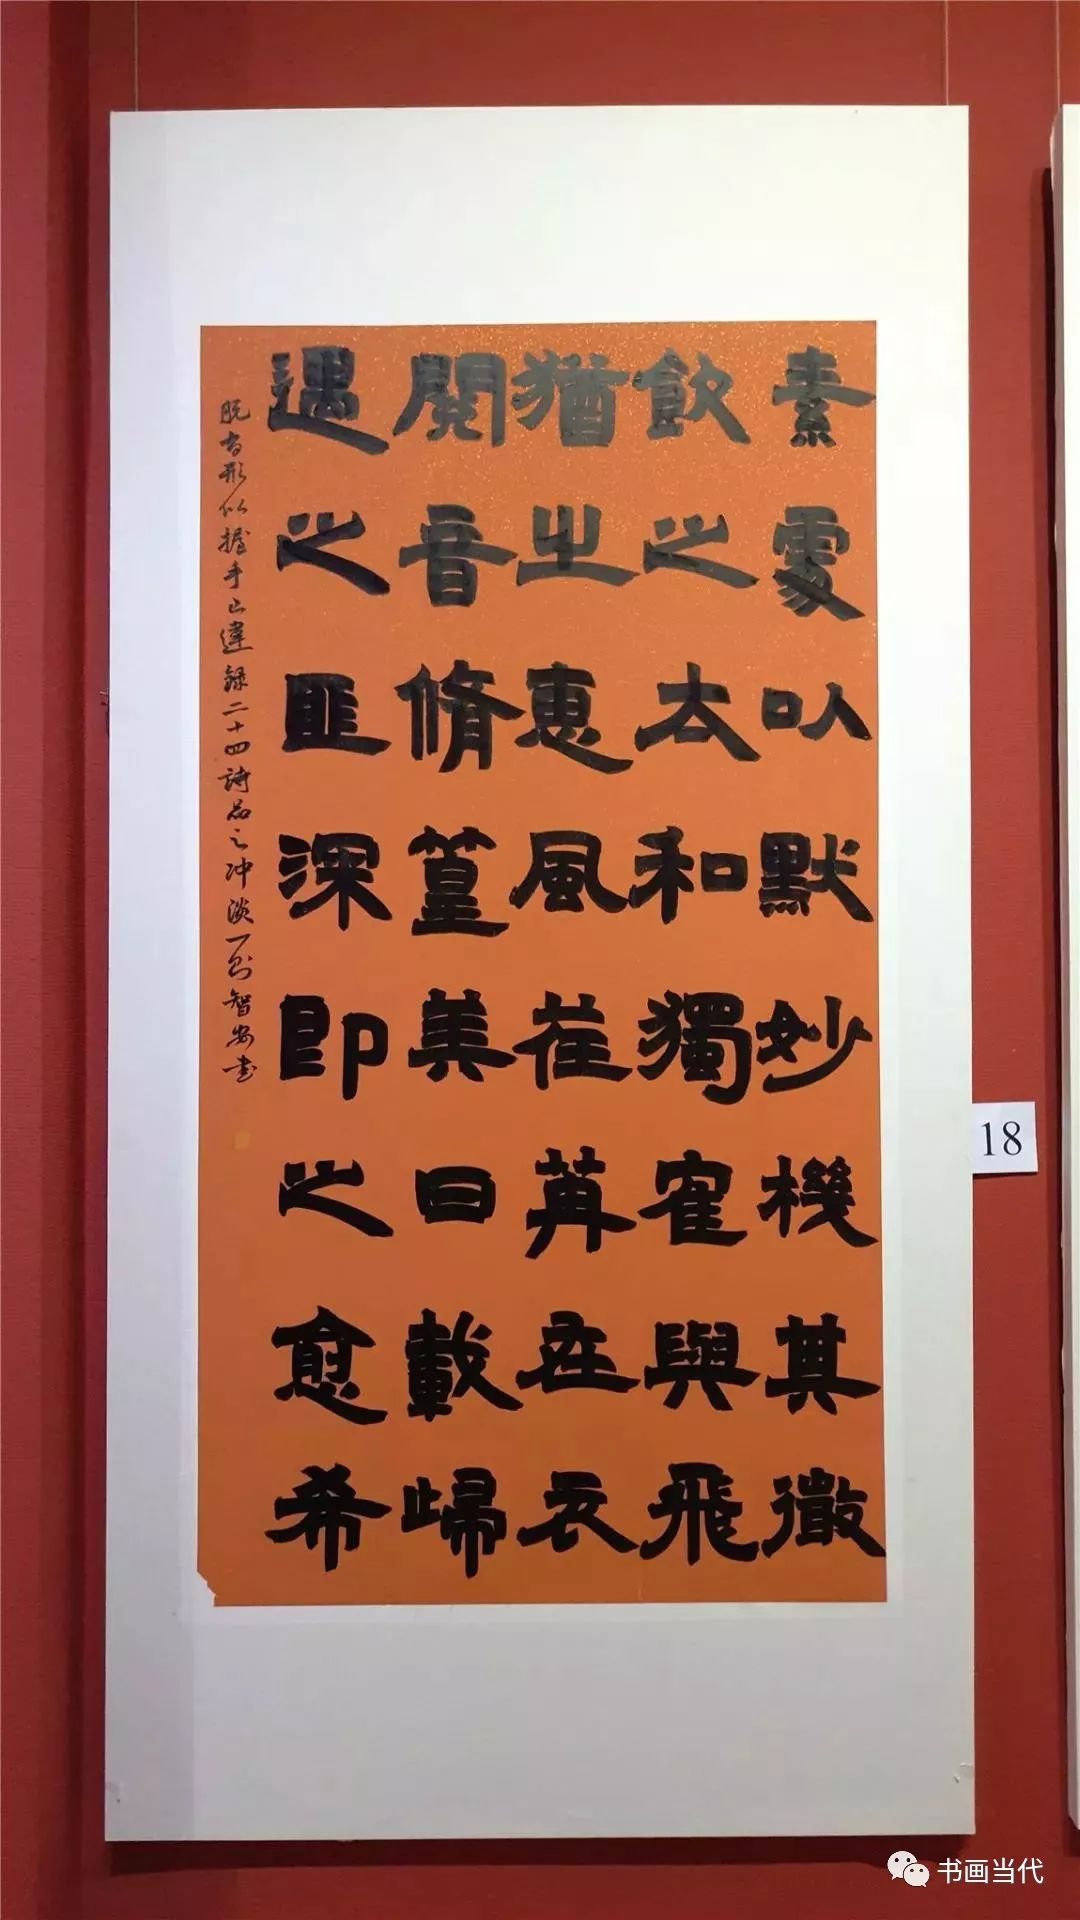 素處以默妙機其微
飲之太和獨寉與飛
猶之惠風荏苒在衣
閱音脩篁美曰載歸
遇之匪深即之愈希
脫有形似握手已違錄二十四詩品之沖淡一則智安書
18
书画当代